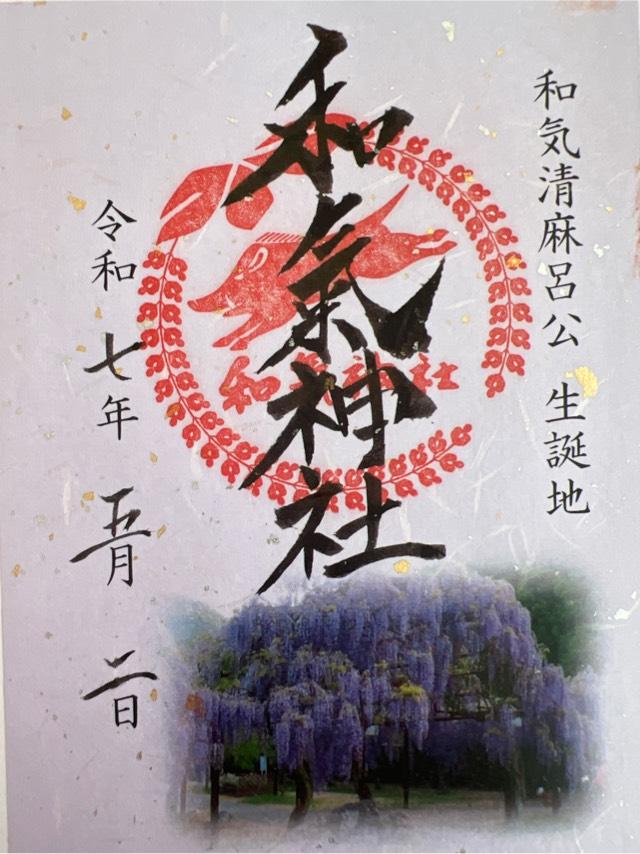 和気清麻呂公 生誕地
和氣神社
和気神社
令和 七年 五月 二日